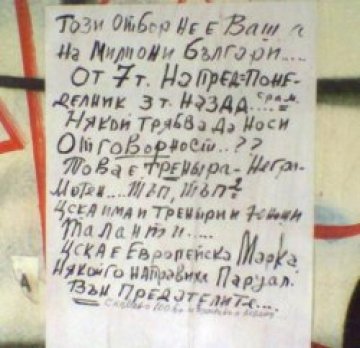 Този отбор не е Ваш а
на милиони Българи....
От 7т. напред=поне-
делник 3т. назад.... срам.
Някой трябва да носи
Отговорност..??
Това е треньра- негра-
мотен.... тъп, тъп?
ЦСКА има и треньри и
таланти....
ЦСКА е Европейска Марка
Някой го направи на парцал.
Вън предателите....